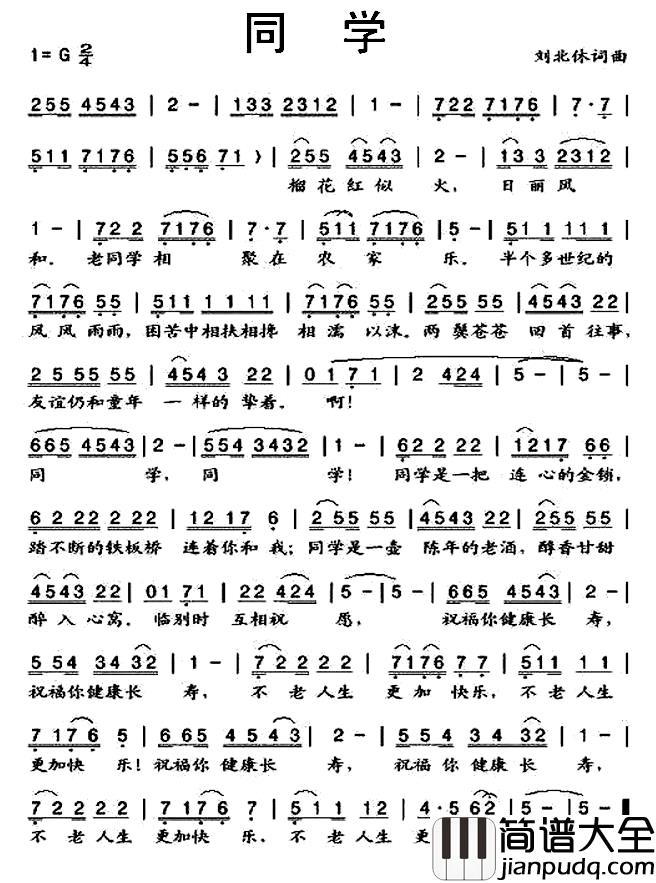 同 学
1= G 2/4 刘北休词曲
255 4543 | 2 - | 133 2312 | 1 - | 722 7176 | 7·7 |
511 7176 | 556 71 ) | 255 4543 | 2 - | 13 3 2312 |
榴花红似 火， 日丽风
1 - | 72 2 7176 | 7·7 | 511 7176 | 5 - | 51 1 111 |
和。 老同学相 聚在 农 家 乐。 半个多世纪的
7176 55 | 511 1 1 11 | 7176 55 | 255 55 | 4543 22 |
风风雨雨，困苦中相扶相搀 相濡 以沫。两鬓苍苍 回首往事，
2 5 55 55 | 454 3 22 | 01 7 1 | 2 424 | 5 - | 5 - |
友谊仍和童年 一样的 挚着。 啊！
665 4543 | 2 - | 554 3432 | 1 - | 62 2 22 | 1217 66 |
同 学， 同 学！ 同学是一把 连心的金锁，
6 2 22 2 22 | 12 1 7 6 | 2 55 55 | 4543 22 | 255 55 |
踏不断的铁板桥 连着你和我；同学是一壶 陈年的老酒，醇香甘甜
4543 22 | 01 71 | 22 424 | 5 - | 5 - | 665 4543 | 2 - |
醉入心窝。临别时 互相祝 愿， 祝福你健康长 寿，
5 54 34 32 | 1 - | 7 2 2 2 2 | 7176 7 7 | 511 1 1 |
祝福你健康长 寿， 不老人生 更加快乐，不老人生
7 176 5 | 665 454 3 | 2 - | 554 34 32 | 1 - |
更加快 乐！祝福你 健康长 寿， 祝福你健康长 寿，
7 2 2 2 2 | 7 17 6 7 | 5 1 1 12 | 4·5 62 | 5 - ‖
不老人生 更加快 乐，不老人生 更
简谱大全
jianpudq.com